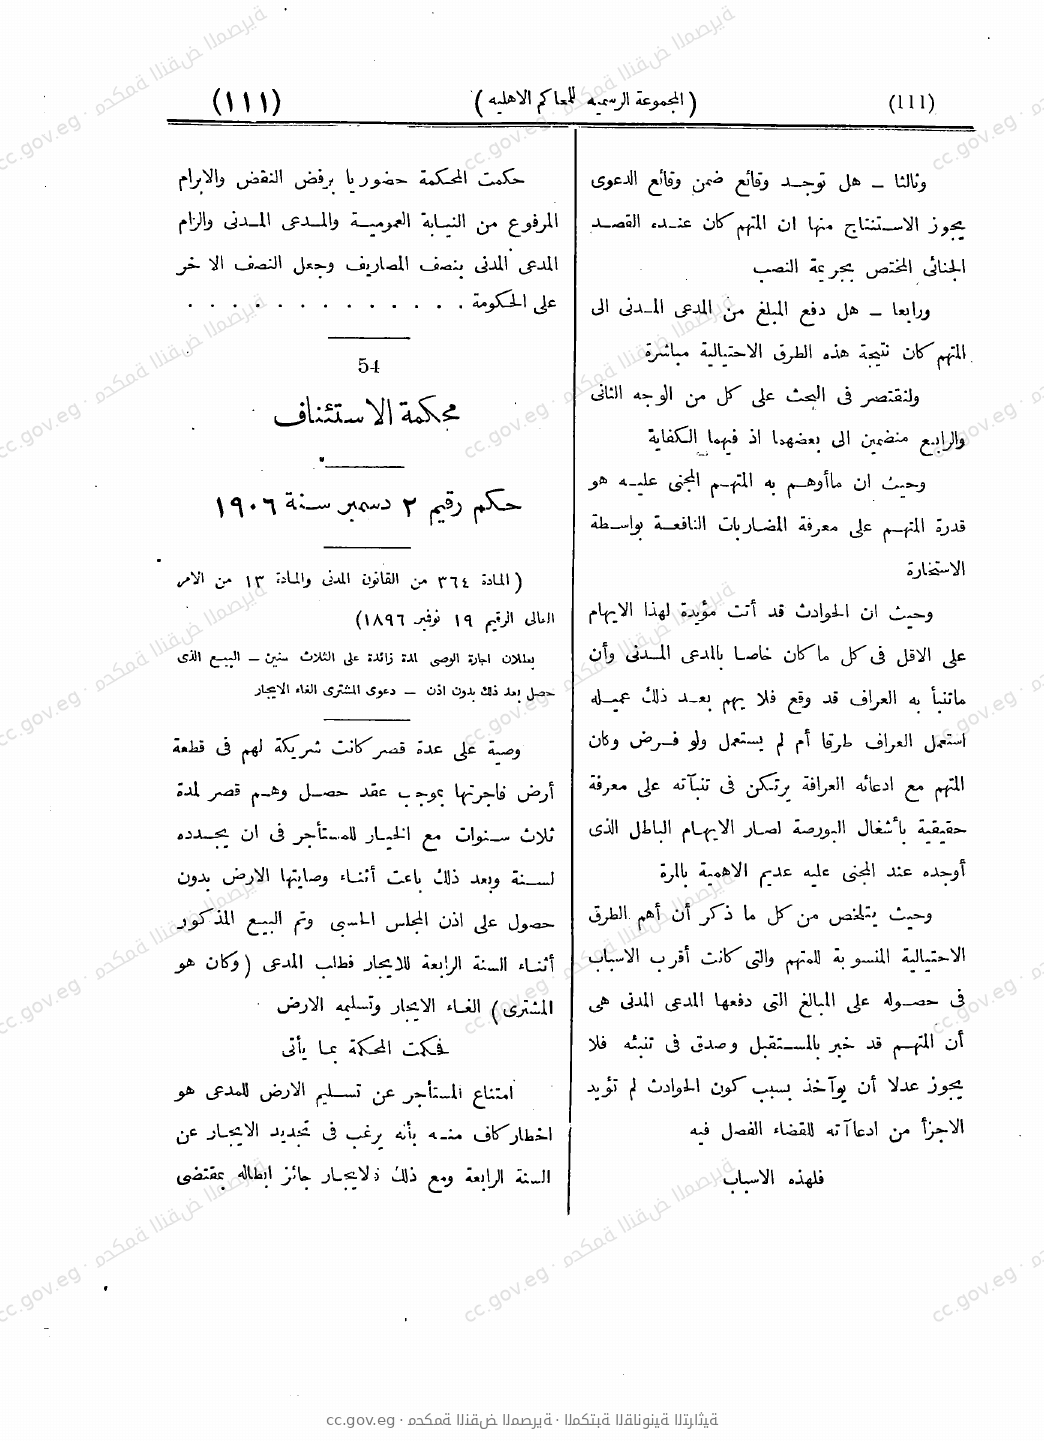 (111)
(المجموعة الرسميه للمحاكم الاهليه)
(١١١)
وثالثا ـ هل توجد وقائع ضمن وقائع الدعوى
يجوز الاستنتاج منها ان المتهم كان عنده القصد
الجنائى المختص بجريمة النصب
ورابعا ـ هل دفع المبلغ من المدعى المدنى الى
المتهم كان نتيجة هذه الطرق الاحتيالية مباشرة
ولنقتصر فى البحث على كل من الوجه الثانى
والرابع منضمين الى بعضهما اذ فيهما الكفاية
وحيث ان ماأوهم به المتهم المجنى عليه هو
قدرة المتهم على معرفة المضاربات النافعة بواسطة
الاستخارة
وحيث ان الحوادث قد أتت مؤيدة لهذا الايهام
على الاقل فى كل ما كان خاصا بالمدعى المدنى وأن
ماتنبأ به العراف قد وقع فلا يهم بعد ذلك عميله
استعمل العراف طرقا أم لم يستعمل ولو فرض وكان
المتهم مع ادعائه العرافة يرتكن فى تنبآته على معرفة
حقيقية بأشغال البورصة لصار الايهام الباطل الذى
أوجده عند المجنى عليه عديم الاهمية بالمرة
وحيث يتلخص من كل ما ذكر أن أهم الطرق
الاحتيالية المنسوبة للمتهم والتى كانت أقرب الاسباب
فى حصوله على المبالغ التى دفعها المدعى المدنى هى
أن المتهم قد خبر بالمستقبل وصدق فى تنبئه فلا
يجوز عدلا أن يوآخذ بسبب كون الحوادث لم تؤيد
الاجزأ من ادعاآته للقضاء الفصل فيه
فلهذه الاسباب
حكمت المحكمة حضوريا برفض النقض والابرام
المرفوع من النيابة العمومية والمدعى المدنى والزام
المدعى المدنى بنصف المصاريف وجعل النصف الاخر
على الحكومة . . . . . . . . . . . .
54
محكمة الاستئناف
حكم رقيم ٢ دسمبر سنة ١٩٠٦
(المادة ٣٦٤ من القانون المدنى والمادة ١٣ من الامر
العالى الرقيم ١٩ نوفمبر ١٨٩٦)
بطلان اجازة الوصى لمدة زائدة على الثلاث سنين ـ البيع الذى
حصل بعد ذلك بدون اذن ـ دعوى المشترى الغاء الايجار
وصية على عدة قصر كانت شريكة لهم فى قطعة
أرض فاجرتها بموجب عقد حصل وهم قصر لمدة
ثلاث سنوات مع الخيار للمستأجر فى ان يجدده
لسنة وبعد ذلك باعت أثناء وصايتها الارض بدون
حصول على اذن المجلس الحسبى وتم البيع المذكور
أثناء السنة الرابعة للايجار فطلب المدعى (وكان هو
المشترى) الغاء الايجار وتسليمه الارض
فحكمت المحكمة بما يأتى
امتناع المستأجر عن تسليم الارض للمدعى هو
اخطار كاف منه بأنه يرغب فى تجديد الايجار عن
السنة الرابعة ومع ذلك فالايجار جائز ابطاله بمقتضى
cc.gov.eg · محكمة النقض المصرية · المكتبة القانونية التراثية